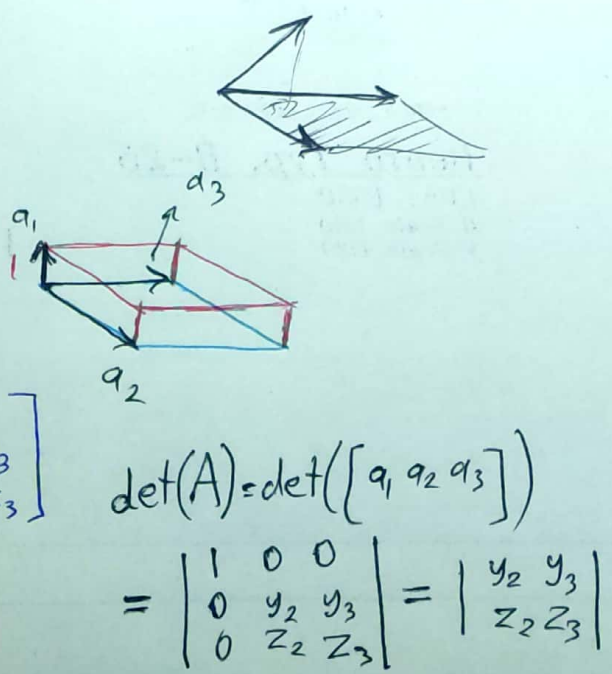 a₃
a₁
1
a₂
3
3 ]
det(A)=det([a₁ a₂ a₃])
= | 1 0 0 |
| 0 y₂ y₃ | = | y₂ y₃ |
| 0 z₂ z₃ | | z₂ z₃ |